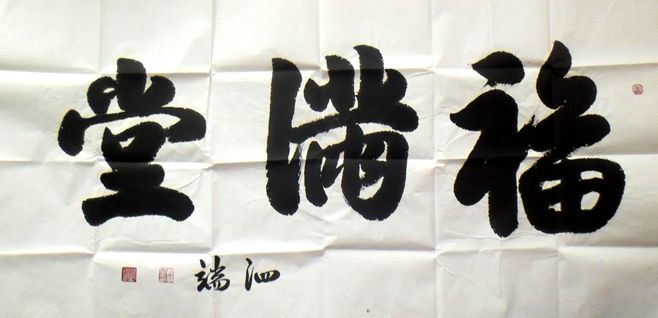 福满堂
泗端